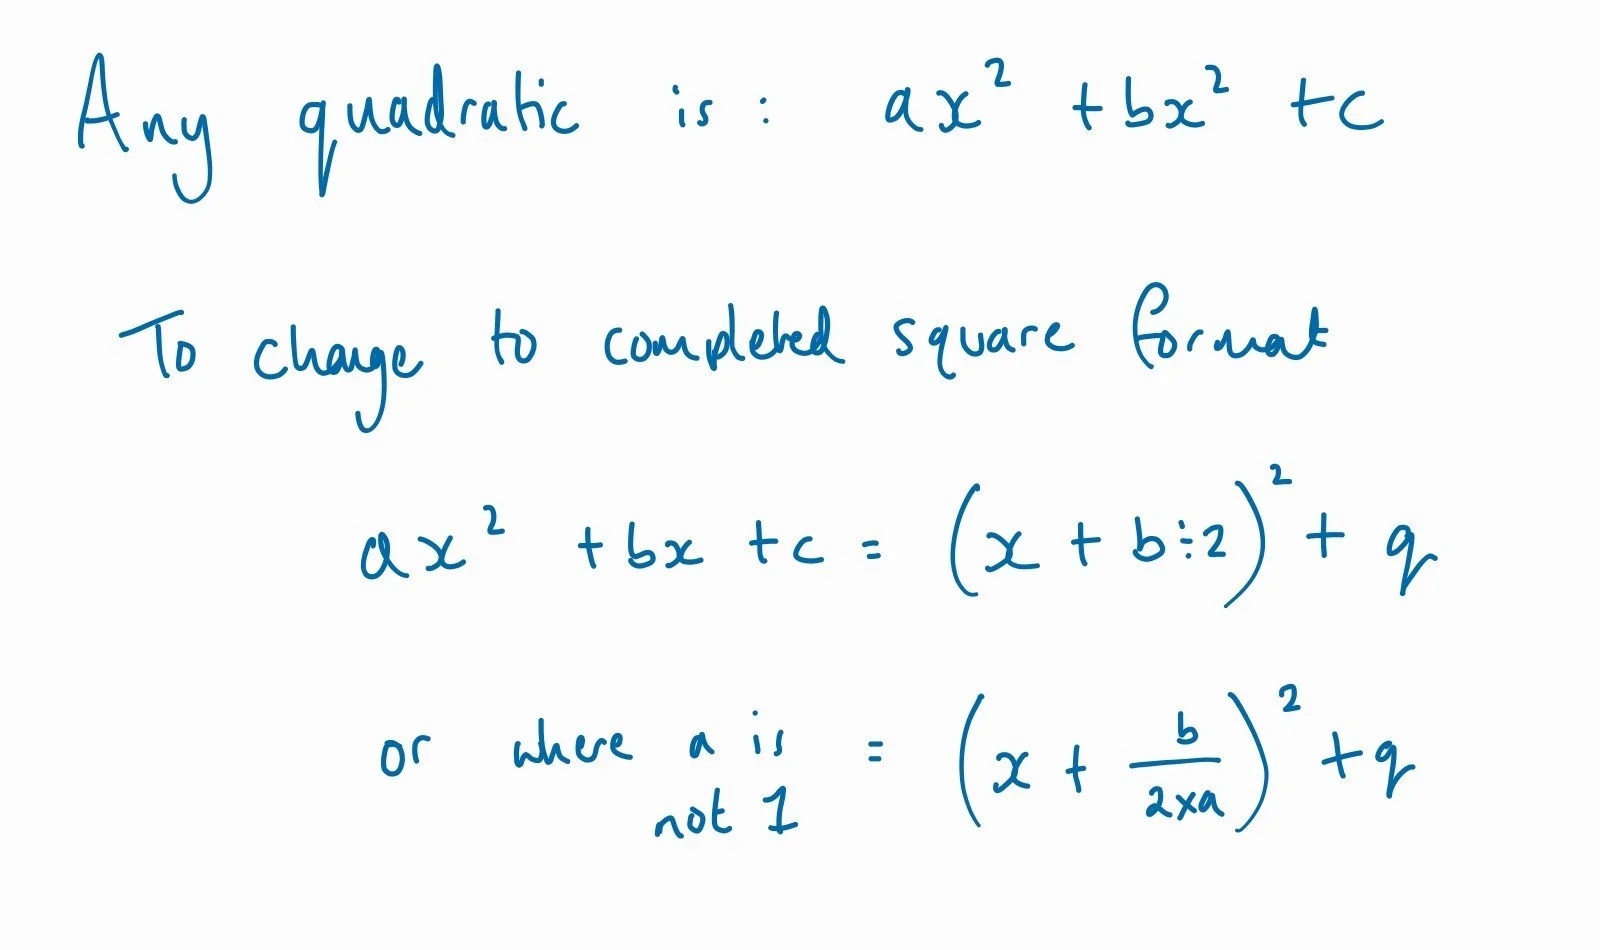 Any quadratic is : ax² + bx² + c
To change to completed square format
ax² + bx + c = (x + b÷2)² + q
or where a is not 1 = (x + b/2×a)² + q